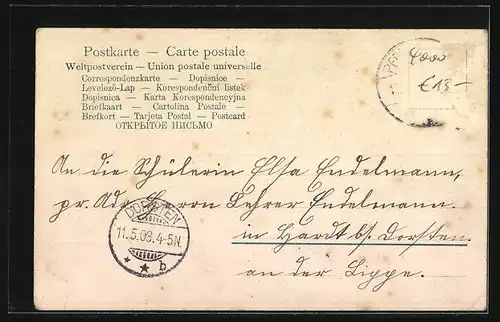 Postkarte — Carte postale
Weltpostverein — Union postale universelle
Correspondenzkarte — Dopisnice —
Levelező-Lap — Korespondenční lístek
Dopisnica — Karta Korespondencyjna
Briefkaart — Cartolina Postale —
Brefkort — Tarjeta Postal — Postcard
ОТКРЫТОЕ ПИСЬМО
4000
€13-
An die Schülerin Elsa Endelmann,
pr. Adr. Herrn Lehrer Endelmann.
in Hardt bs. Dorsten.
an der Lippe.
DORSTEN
11.5.08.4-5N.
* * b